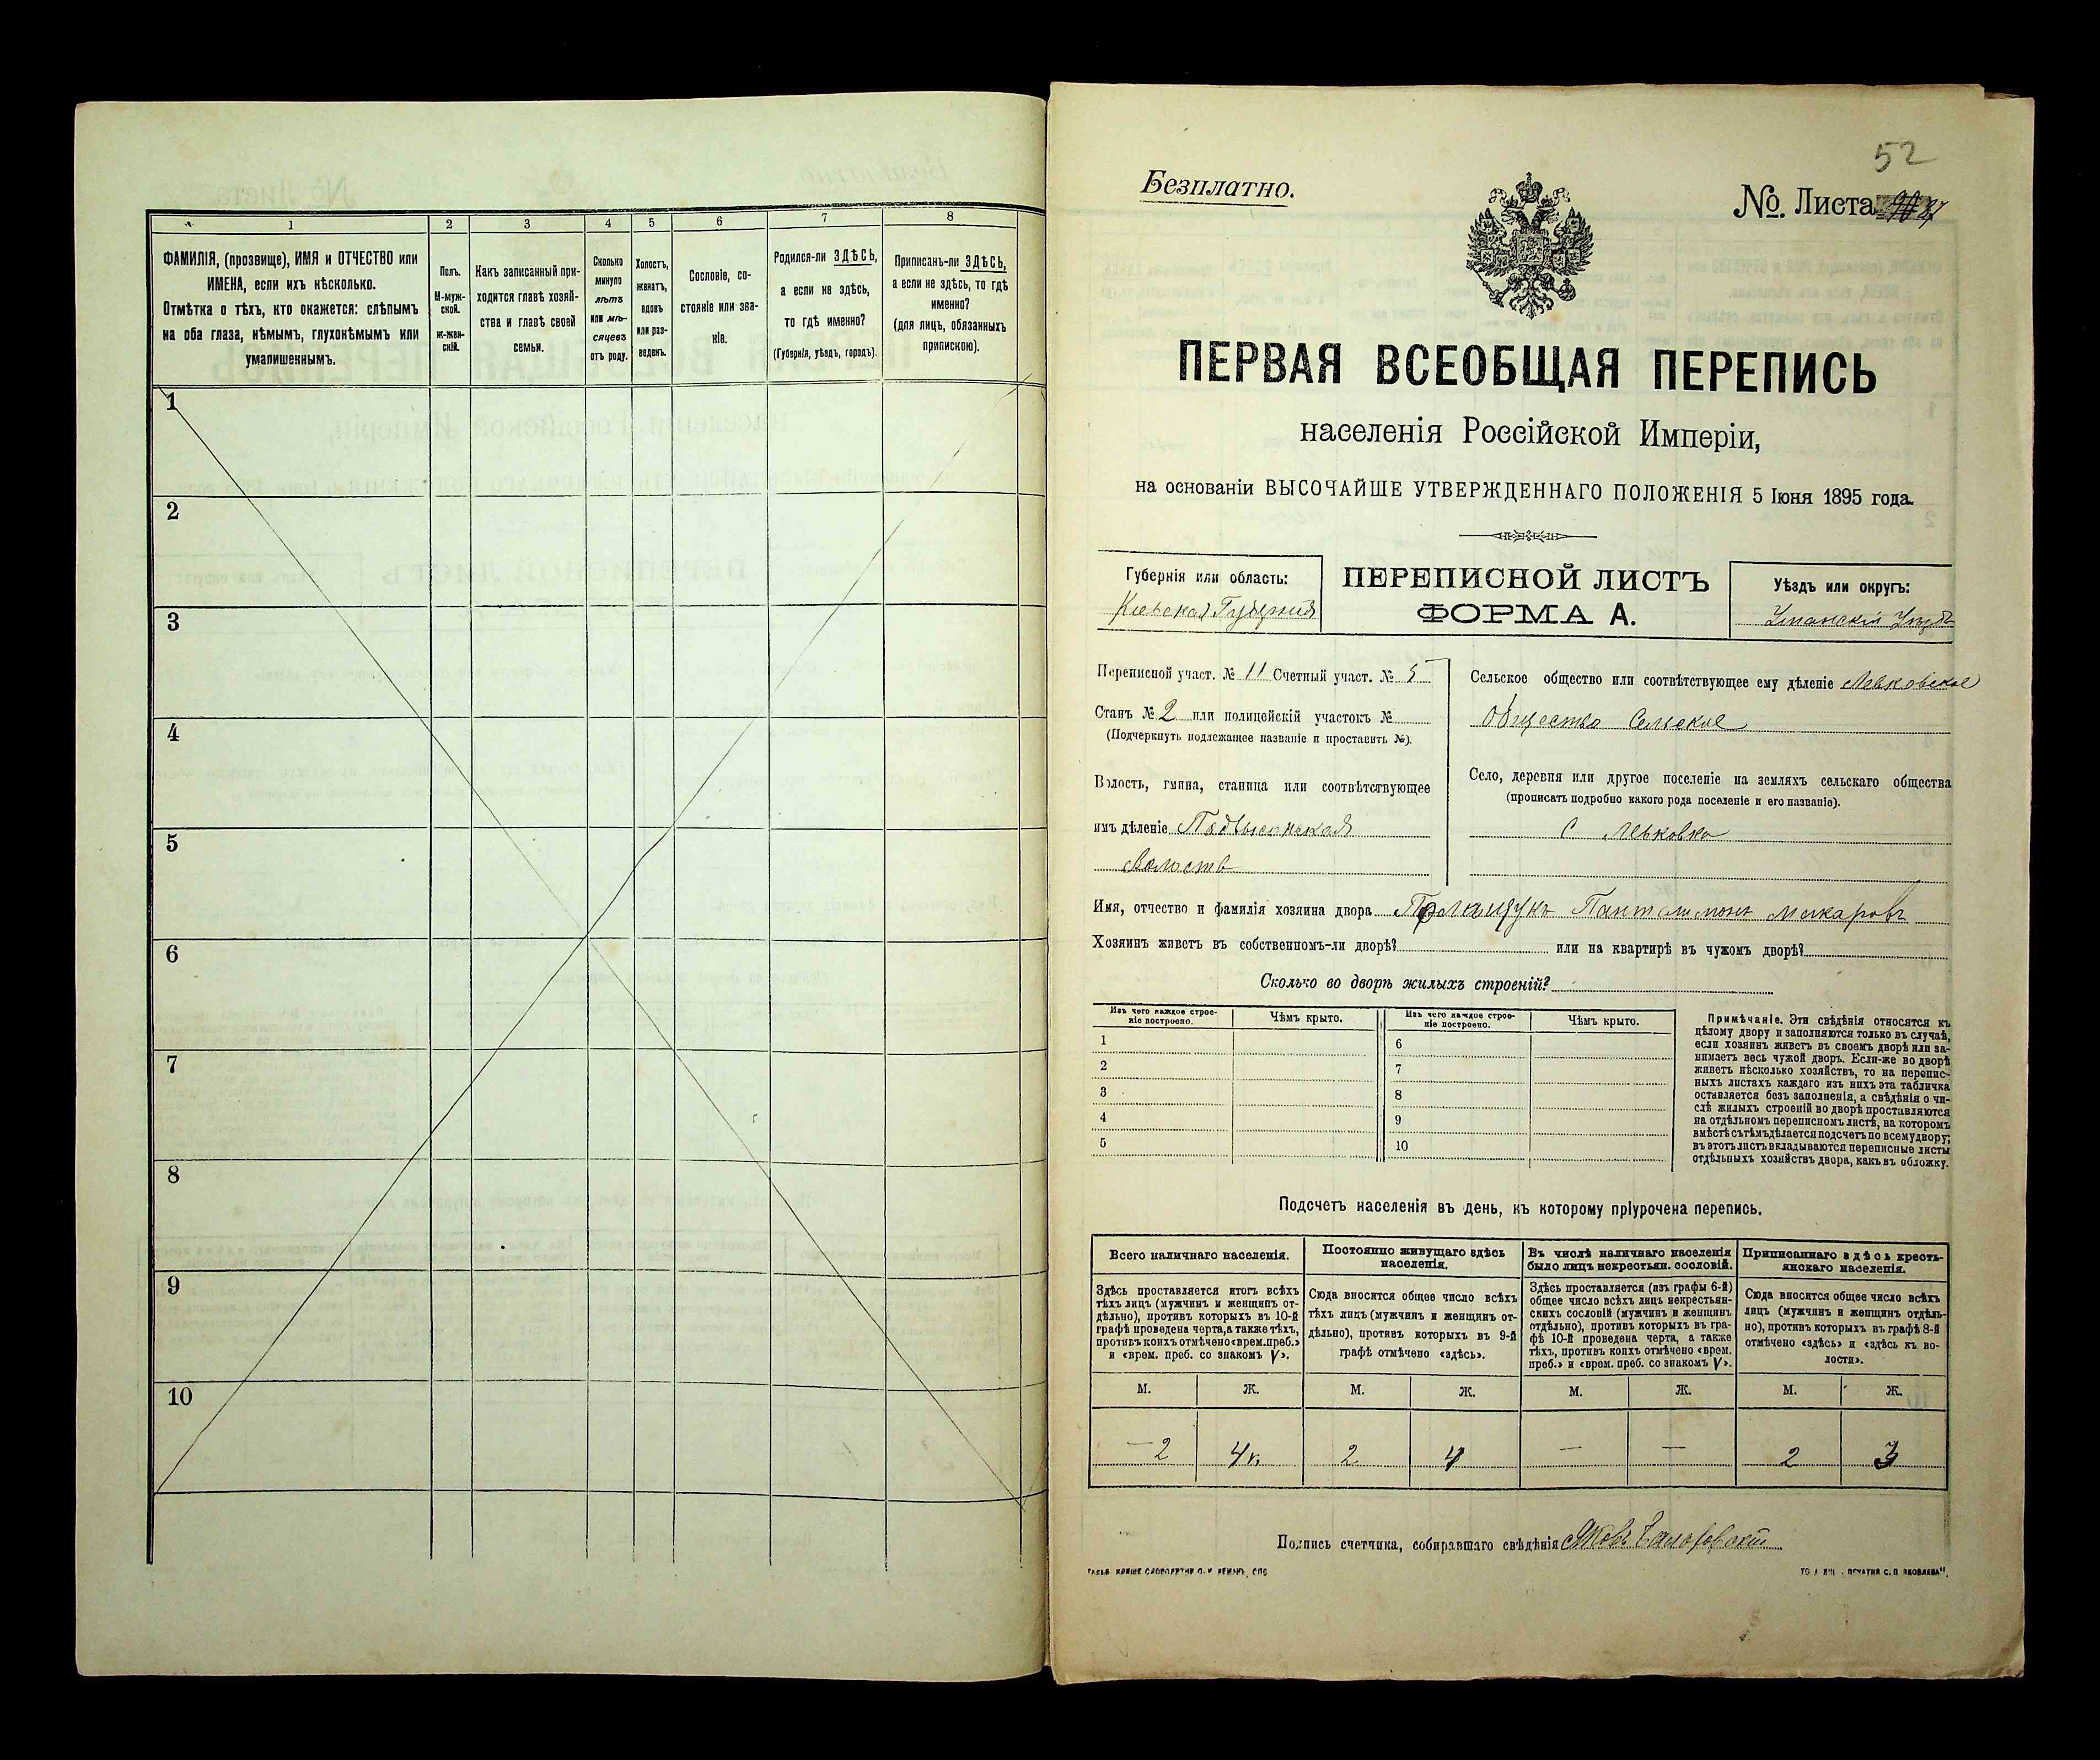 1 2 3 4 5 6 7 8
ФАМИЛІЯ, (прозвище), ИМЯ и ОТЧЕСТВО или
ИМЕНА, если ихъ нѣсколько.
Отмѣтка о тѣхъ, кто окажется: слѣпымъ
на оба глаза, нѣмымъ, глухонѣмымъ или
умалишеннымъ.
Полъ.
М-муж-
ской.
ж-жен-
скій.
Какъ записанный при-
ходится главѣ хозяй-
ства и главѣ своей
семьи.
Сколько
минуло
лѣтъ
или мѣ-
сяцевъ
отъ роду.
Холостъ,
женатъ,
вдовъ
или раз-
веденъ.
Сословіе, со-
стояніе или зва-
ніе.
Родился-ли ЗДѢСЬ,
а если не здѣсь,
то гдѣ именно?
(Губернія, уѣздъ, городъ).
Приписанъ-ли ЗДѢСЬ,
а если не здѣсь, то гдѣ
именно?
(для лицъ, обязанныхъ
припискою).
1
2
3
4
5
6
7
8
9
10
52
Безплатно.
№ Листа
ПЕРВАЯ ВСЕОБЩАЯ ПЕРЕПИСЬ
населенія Россійской Имперіи,
на основаніи ВЫСОЧАЙШЕ УТВЕРЖДЕННАГО ПОЛОЖЕНІЯ 5 Іюня 1895 года.
Губернія или область:
Кіевская Губернія
ПЕРЕПИСНОЙ ЛИСТЪ
ФОРМА А.
Уѣздъ или округъ:
Уманскій Уѣздъ
Переписной участ. № 11 Счетный участ. № 5
Станъ № 2 или полицейскій участокъ №
(Подчеркнуть подлежащее названіе и проставить №).
Волость, гмина, станица или соотвѣтствующее
имъ дѣленіе Подвысоцкая
Волость
Сельское общество или соотвѣтствующее ему дѣленіе Левковское
Общество Сельское
Село, деревня или другое поселеніе на земляхъ сельскаго общества
(прописать подробно какого рода поселеніе и его названіе).
с Левковка
Имя, отчество и фамилія хозяина двора Полащукъ Пантелимонъ Макаровъ
Хозяинъ живетъ въ собственномъ-ли дворѣ? или на квартирѣ въ чужомъ дворѣ?
Сколько во дворѣ жилыхъ строеній?
Изъ чего каждое строе-
ніе построено.
Чѣмъ крыто.
Изъ чего каждое строе-
ніе построено.
Чѣмъ крыто.
1 6
2 7
3 8
4 9
5 10
Примѣчаніе. Эти свѣдѣнія относятся къ
цѣлому двору и заполняются только въ случаѣ,
если хозяинъ живетъ въ своемъ дворѣ или за-
нимаетъ весь чужой дворъ. Если-же во дворѣ
живетъ нѣсколько хозяйствъ, то на перепис-
ныхъ листахъ каждаго изъ нихъ эта табличка
оставляется безъ заполненія, а свѣдѣнія о чи-
слѣ жилыхъ строеній во дворѣ проставляются
на отдѣльномъ переписномъ листѣ, на которомъ
вмѣстѣ съ тѣмъ дѣлается подсчетъ по всему двору;
въ этотъ листъ вкладываются переписные листы
отдѣльныхъ хозяйствъ двора, какъ въ обложку.
Подсчетъ населенія въ день, къ которому пріурочена перепись.
Всего наличнаго населенія.
Постоянно живущаго здѣсь
населенія.
Въ числѣ наличнаго населенія
было лицъ некрестьян. сословій.
Приписаннаго здѣсь кресть-
янскаго населенія.
Здѣсь проставляется итогъ всѣхъ
тѣхъ лицъ (мужчинъ и женщинъ от-
дѣльно), противъ которыхъ въ 10-й
графѣ проведена черта, а также тѣхъ,
противъ коихъ отмѣчено «врем. преб.»
и «врем. преб. со знакомъ V».
Сюда вносится общее число всѣхъ
тѣхъ лицъ (мужчинъ и женщинъ от-
дѣльно), противъ которыхъ въ 9-й
графѣ отмѣчено «здѣсь».
Здѣсь проставляется (изъ графы 6-й)
общее число всѣхъ лицъ некрестьян-
скихъ сословій (мужчинъ и женщинъ
отдѣльно), противъ которыхъ въ гра-
фѣ 10-й проведена черта, а также
тѣхъ, противъ коихъ отмѣчено «врем.
преб.» и «врем. преб. со знакомъ V».
Сюда вносится общее число всѣхъ
лицъ (мужчинъ и женщинъ отдѣль-
но), противъ которыхъ въ графѣ 8-й
отмѣчено «здѣсь» и «здѣсь къ во-
лости».
М. Ж. М. Ж. М. Ж. М. Ж.
2 4 2 4 — — 2 3
Подпись счетчика, собиравшаго свѣдѣнія Яковъ